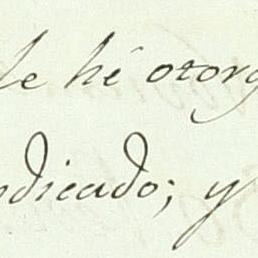 le hé otorg
ndicado; y